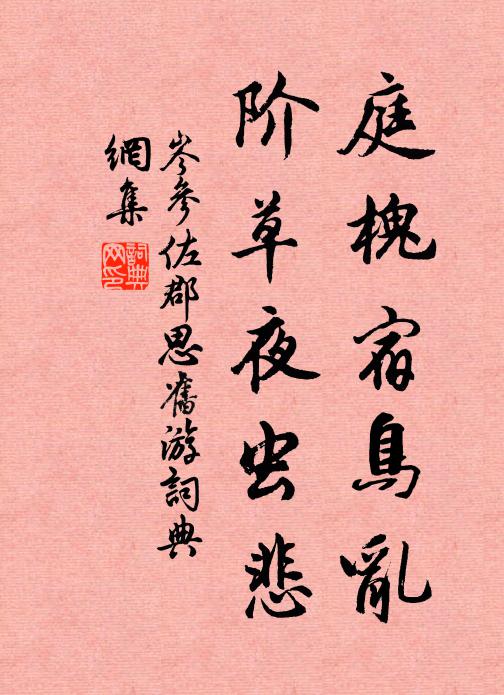 庭槐宿鳥亂
阶草夜虫悲
岑參佐郡思舊游詞典
網集
詞典網印